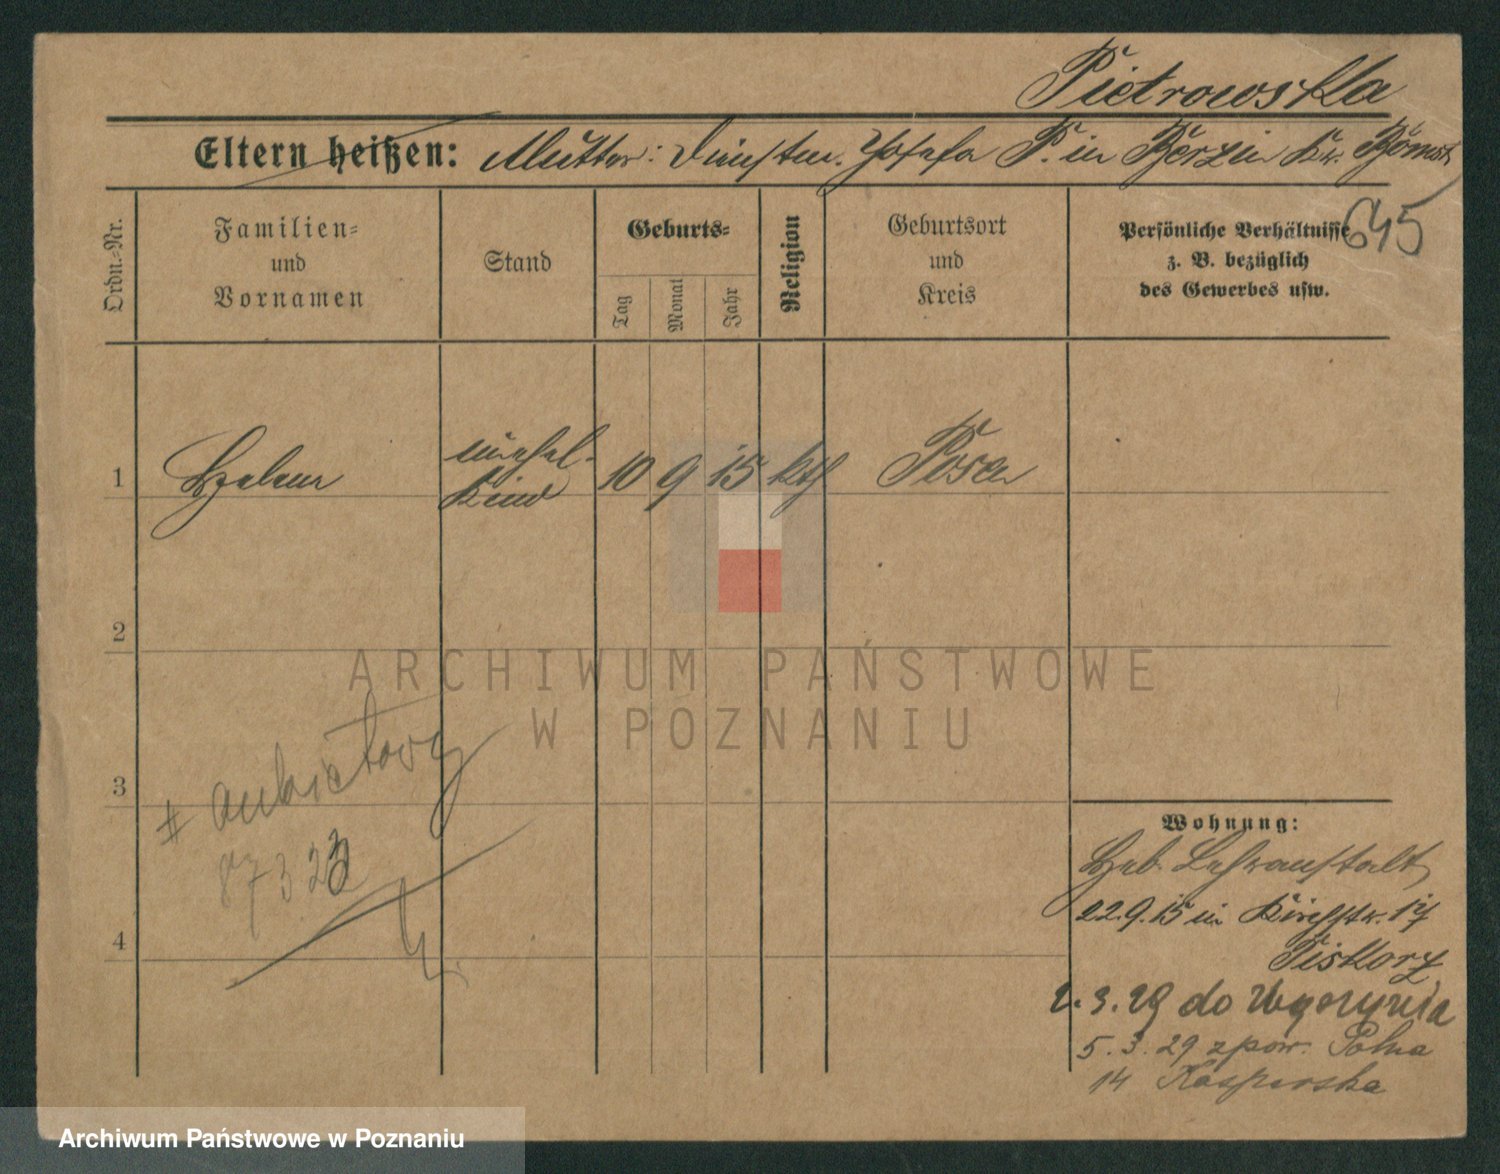 Pietrowska
Eltern heißen: Mutter: Dienstm. Josefa P. in Borzin Kr. Bomst
645
Ordn.-Nr.
Familien-
und
Vornamen
Stand
Geburts-
Tag
Monat
Jahr
Religion
Geburtsort
und
Kreis
Persönliche Verhältnisse
z. B. bezüglich
des Gewerbes usw.
1 Helene unehel. Kind 10 9 15 kth Posen
2
3
4
ARCHIWUM PAŃSTWOWE
W POZNANIU
87322
Wohnung:
Heb. Lehranstalt
22.9.15 in Kirchstr. 17
Piskorz
2.3.29 do
5.3.29 z pow. Polna
14 Kasperska
Archiwum Państwowe w Poznaniu